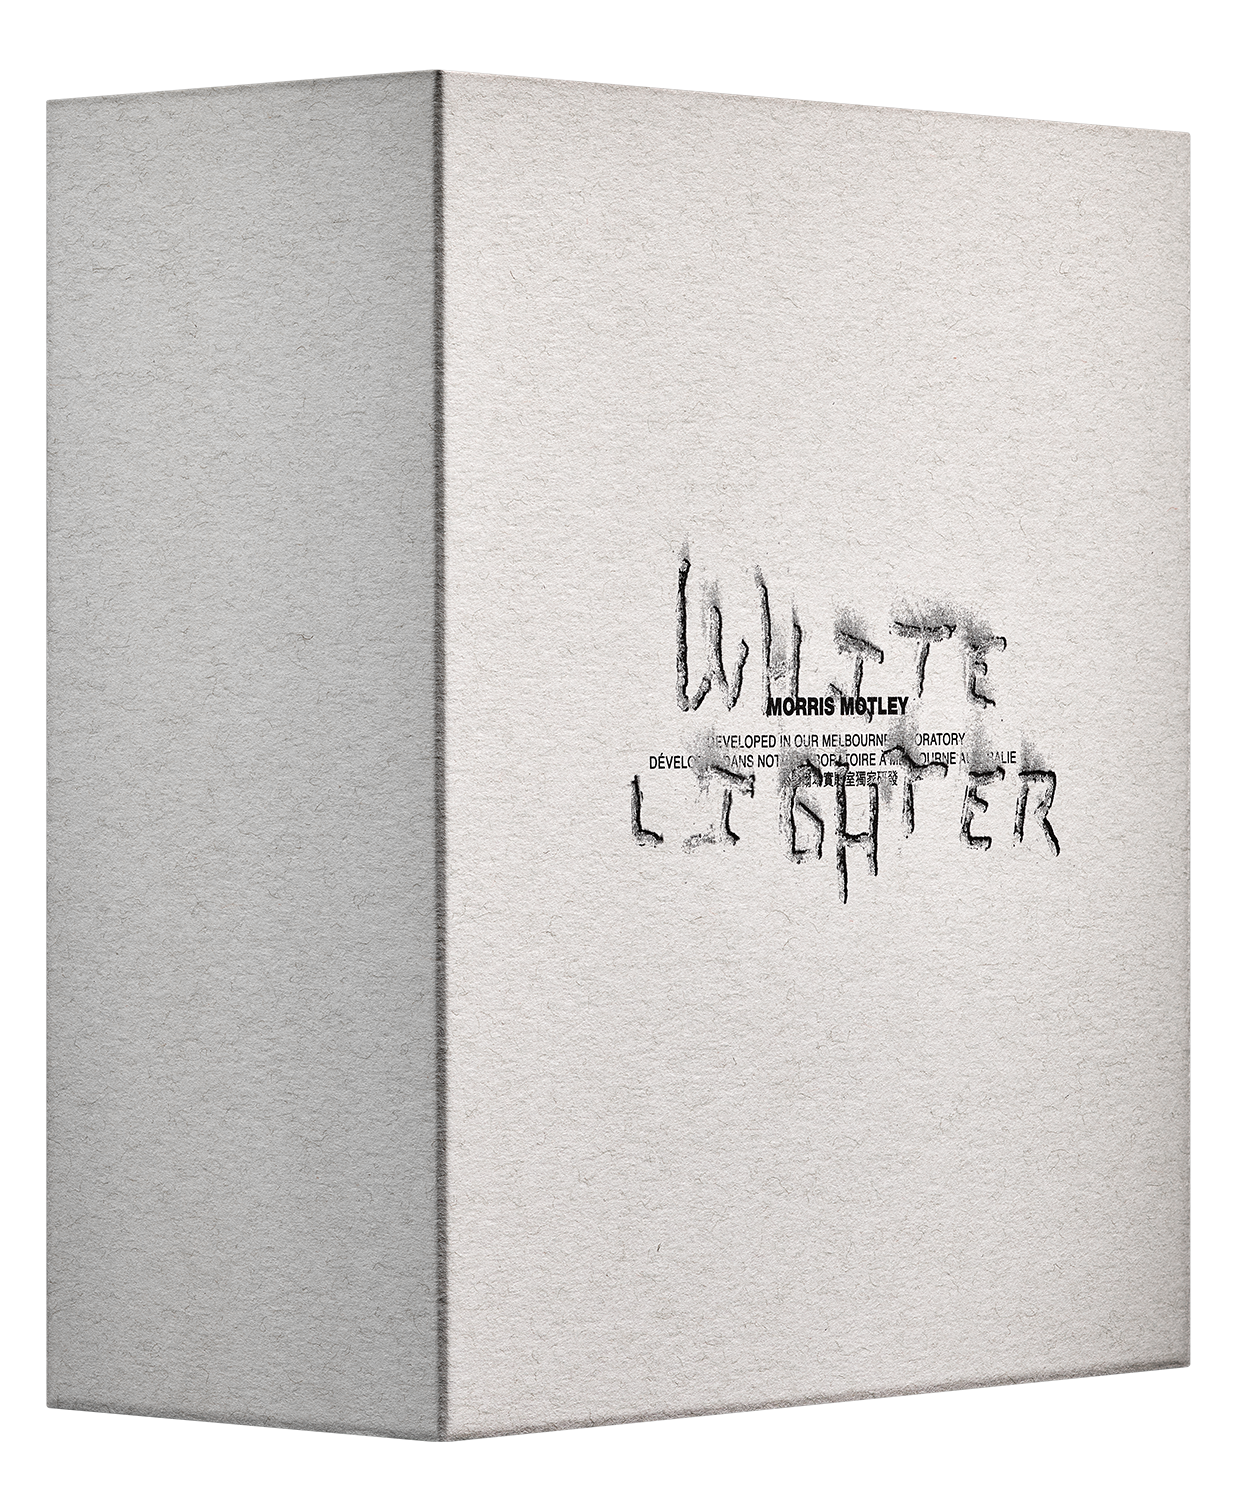 WHITE
MORRIS MOTLEY
DEVELOPED IN OUR MELBOURNE LABORATORY
DÉVELOPPÉ DANS NOTRE LABORATOIRE À MELBOURNE AUSTRALIE
墨爾本實驗室獨家研發
LIGHTER